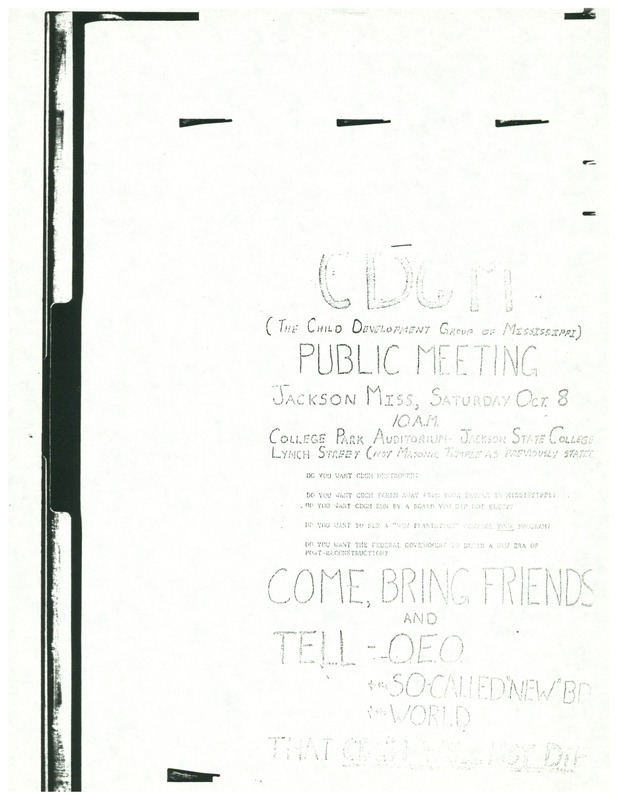 CDGM
(THE CHILD DEVELOPMENT GROUP OF MISSISSIPPI)
PUBLIC MEETING
JACKSON MISS, SATURDAY OCT. 8
10 A.M.
COLLEGE PARK AUDITORIUM- JACKSON STATE COLLEGE
LYNCH STREET (NOT MASONIC TEMPLE AS PREVIOUSLY STATED
DO YOU WANT CDGM DESTROYED?
DO YOU WANT CDGM TAKEN AWAY FROM YOUR PEOPLE IN MISSISSIPPI?
DO YOU WANT CDGM RUN BY A BOARD YOU DID NOT ELECT?
DO YOU WANT TO SEE A "NEW PLANTATION" CONTROL YOUR PROGRAM?
DO YOU WANT THE FEDERAL GOVERNMENT TO BUILD A NEW ERA OF
POST-RECONSTRUCTION?
COME, BRING FRIENDS
AND
TELL - O.E.O.
SO-CALLED "NEW" BD
WORLD
THAT CDGM WILL NOT DIE